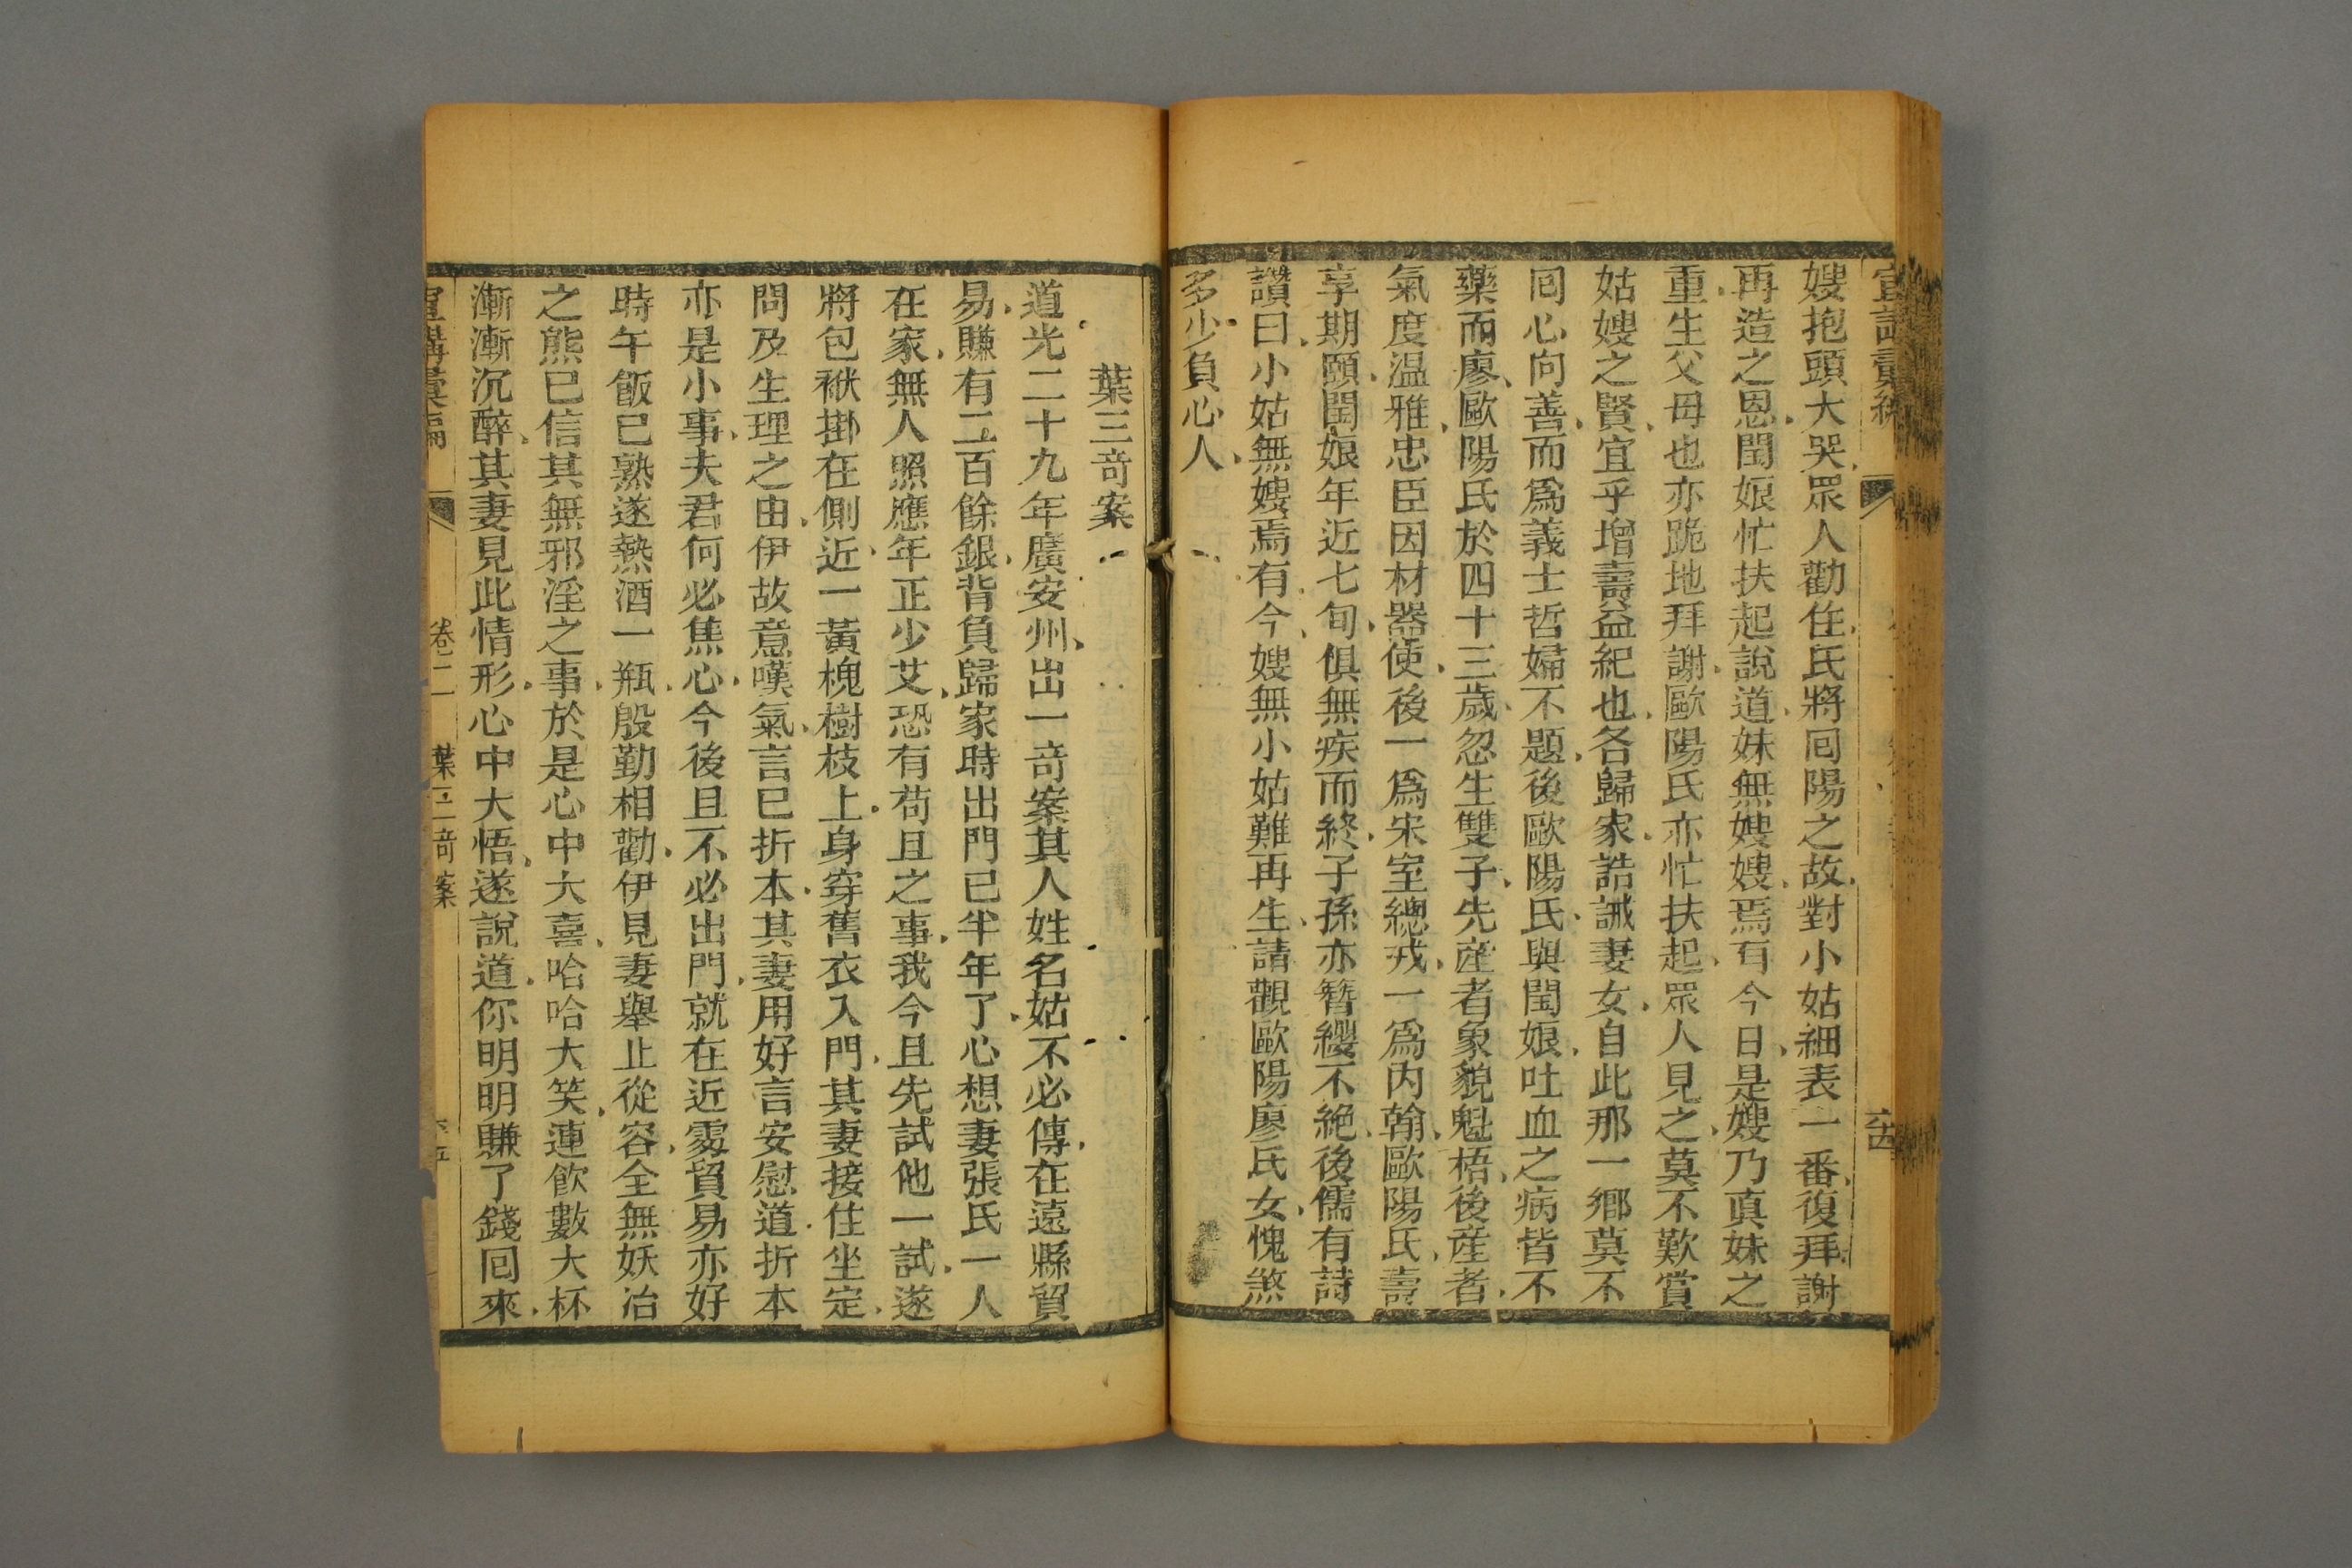 嫂抱頭大哭眾人勸住氏將囘陽之故對小姑細表一番復拜謝
再造之恩閏娘忙扶起說道妹無嫂嫂焉有今日是嫂乃真妹之
重生父母也亦跪地拜謝歐陽氏亦忙扶起眾人見之莫不歎賞
姑嫂之賢宜乎增壽益紀也各歸家誥誡妻女自此那一鄉莫不
囘心向善而爲義士哲婦不題後歐陽氏與閏娘吐血之病皆不
藥而廖歐陽氏於四十三歲忽生雙子先產者象貌魁梧後產者
氣度温雅忠臣因材器使後一爲宋室總戎一爲內翰歐陽氏壽
享期頤閏娘年近七旬俱無疾而終子孫亦簪纓不絕後儒有詩
讚曰小姑無嫂焉有今嫂無小姑難再生請觀歐陽廖氏女愧煞
多少負心人
葉三奇案
道光二十九年廣安州出一奇案其人姓名姑不必傳在遠縣貿
易賺有二百餘銀背負歸家時出門已半年了心想妻張氏一人
在家無人照應年正少艾恐有苟且之事我今且先試他一試遂
將包袱掛在側近一黃槐樹枝上身穿舊衣入門其妻接住坐定
問及生理之由伊故意嘆氣言已折本其妻用好言安慰道折本
亦是小事夫君何必焦心今後且不必出門就在近處貿易亦好
時午飯已熟遂熱酒一瓶殷勤相勸伊見妻舉止從容全無妖冶
之熊已信其無邪淫之事於是心中大喜哈哈大笑連飲數大杯
漸漸沉醉其妻見此情形心中大悟遂說道你明明賺了錢囘來
宣講彙編 卷二 葉三奇案